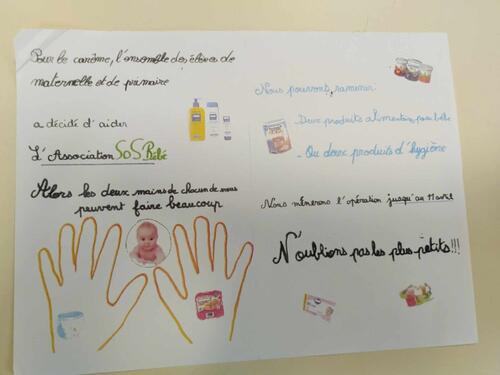 Pour le carême, l'ensemble des élèves de
maternelle et de primaire
a décidé d'aider
L'Association SOS Bébé
Alors les deux mains de chacun de nous
peuvent faire beaucoup
Nous pourrons ramener
- Deux produits alimentaires pour bébé
- Ou deux produits d'hygiène
Nous mènerons l'opération jusqu'au 11 avril
N'oublions pas les plus petits!!!